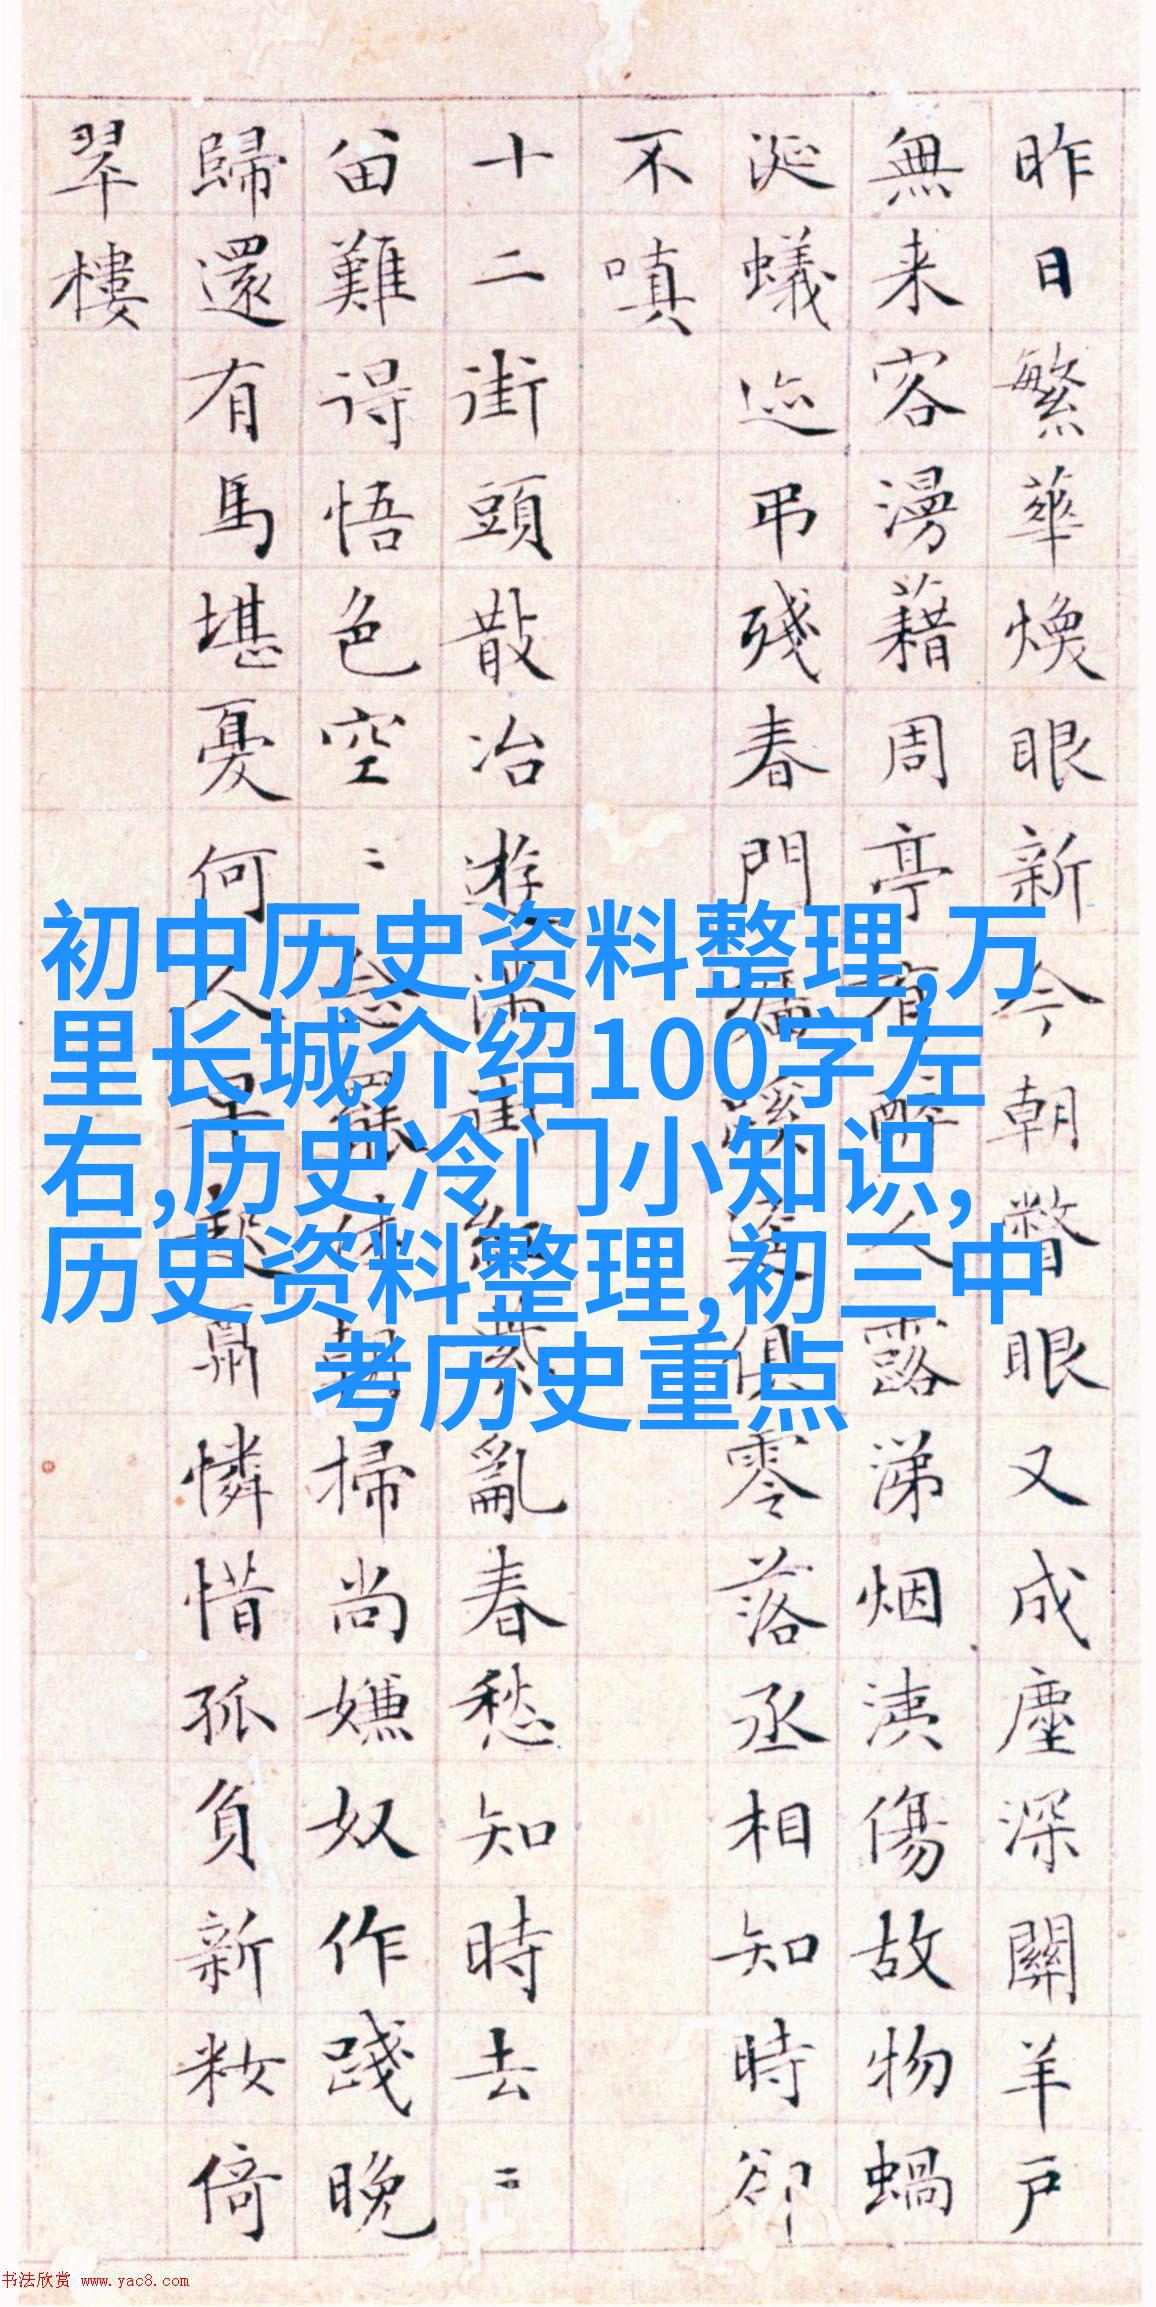 昨日繁華煥眼新今朝瞥眼又成塵深關羊戶
無来客漫藉周亭有醉人露涕烟洟傷故物蝸
涎蟻迹弔殘春門牆蹊逕俱零落丞相知時卻
不嗔
十二街頭散冶遊滿街紅紫亂春愁知時去〻
留難得悟色空〻念罷休朝掃尚嫌奴作踐晚
歸還有馬堪憂何人早起肩憐惜孤負新妝倚
翠樓
初中历史资料整理,万
里长城介绍100字左
右,历史冷门小知识,
历史资料整理,初三中
考历史重点
书法欣赏 www.yac8.com